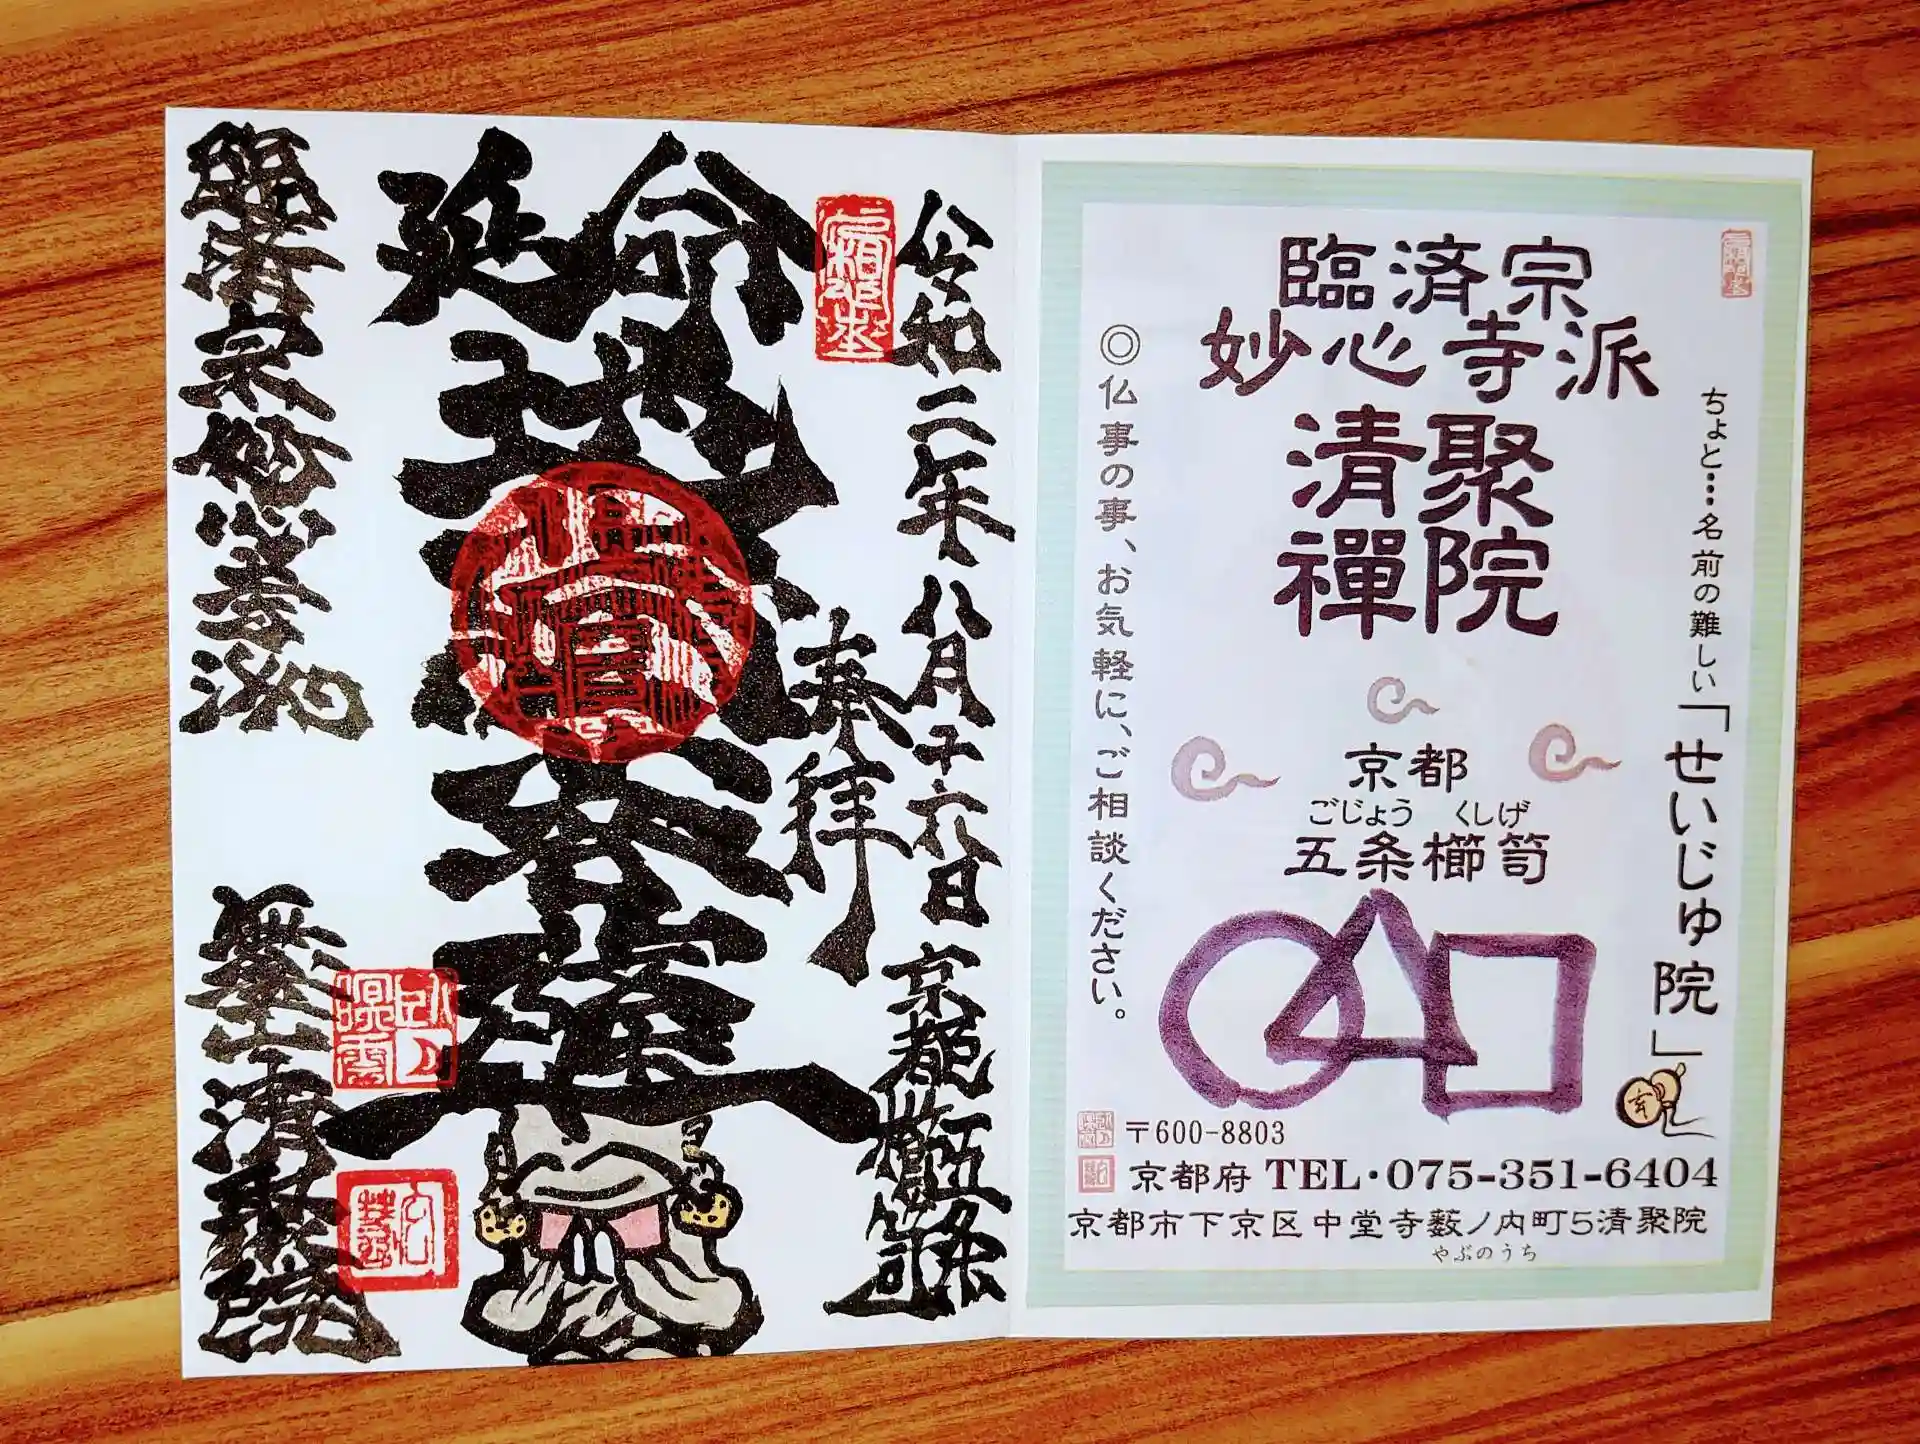 令和二年八月十六日
京都五条櫛笥
奉拝
延命
地蔵
大菩薩
臨済宗妙心寺派
清聚院
臨済宗
妙心寺派
清聚院
禪院
京都
ごじょう くしげ
五条櫛笥
ちょと…名前の難しい「せいじゅ院」
幸
◎仏事の事、お気軽に、ご相談ください。
〒600-8803
京都府 TEL・075-351-6404
京都市下京区中堂寺薮ノ内町5清聚院
やぶのうち